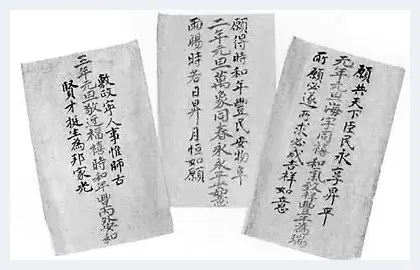 願共天下臣民永享昇平
元年元旦海宇同禧和氣致祥豐年為瑞
所願必遂所求必成吉祥如意
願得時和年豐民安物阜
二年元旦萬象同春永永平安如意
雨暘時若日昇月恒如願
敷政寧人事惟師古
三年元旦敬迓福禧時和年豐內外安和
賢才挺生為邦家光